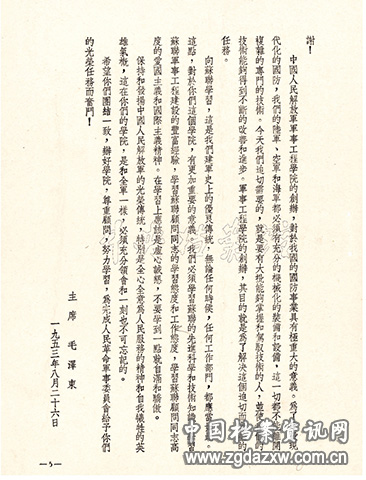 謝！
中國人民解放軍軍事工程學院的創辦，對於我國的國防事業具有極重大的意義。爲了建設現
代化的國防，我們的陸軍、空軍和海軍都必須有充分的機械化的裝備和設備，這一切都不能離開
複雜的專門的技術。今天我們迫切需要的，就是要有大批能夠掌握和駕馭技術的人，並使我們的
技術能夠得到不斷的改善和進步。軍事工程學院的創辦，其目的就是爲了解決這個迫切而光榮的
任務。
向蘇聯學習，這是我們建軍史上的優良傳統，無論任何時候，任何工作部門，都應當如此。
這點，對於你們這個學院，有更加重要的意義。我們必須學習蘇聯的先進科學和技術知識，學習
蘇聯軍事工程建設的豐富經驗，學習蘇聯顧問同志的學習態度和工作態度，學習蘇聯顧問同志高
度的愛國主義和國際主義精神。在學習上應該是虛心誠懇，不要學到一點就自滿和驕傲。
保持和發揚中國人民解放軍的光榮傳統，特別是全心全意爲人民服務的精神和自我犧牲的英
雄氣概，這在你們的學院，是和全軍一樣，必須充分領會和一刻也不可忘記的。
希望你們團結一致，辦好學院，尊重顧問，努力學習，爲完成人民革命軍事委員會給予你們
的光榮任務而奮鬥！
主席　毛澤東
一九五三年八月二十六日
—5—
中国档案资讯网
www.zgdazxw.com.cn